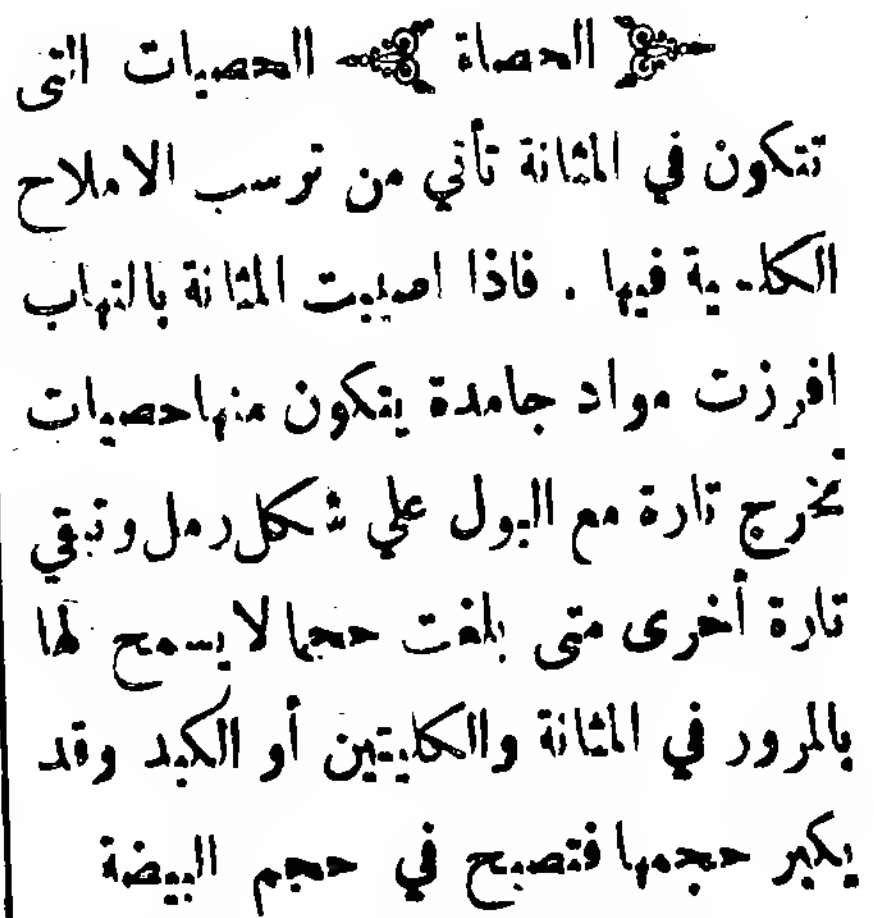 ﴿ الحصاة ﴾ الحصيات التى
تتكون في المثانة تأتي من ترسب الاملاح
الكلسية فيها . فاذا اصيبت المثانة بالتهاب
افرزت مواد جامدة يتكون منها حصيات
تخرج تارة مع البول علي شكل رمل وتبقي
تارة أخرى متى بلغت حجما لا يسمح لها
بالمرور في المثانة والكليتين أو الكبد وقد
يكبر حجمها فتصبح في حجم البيضة